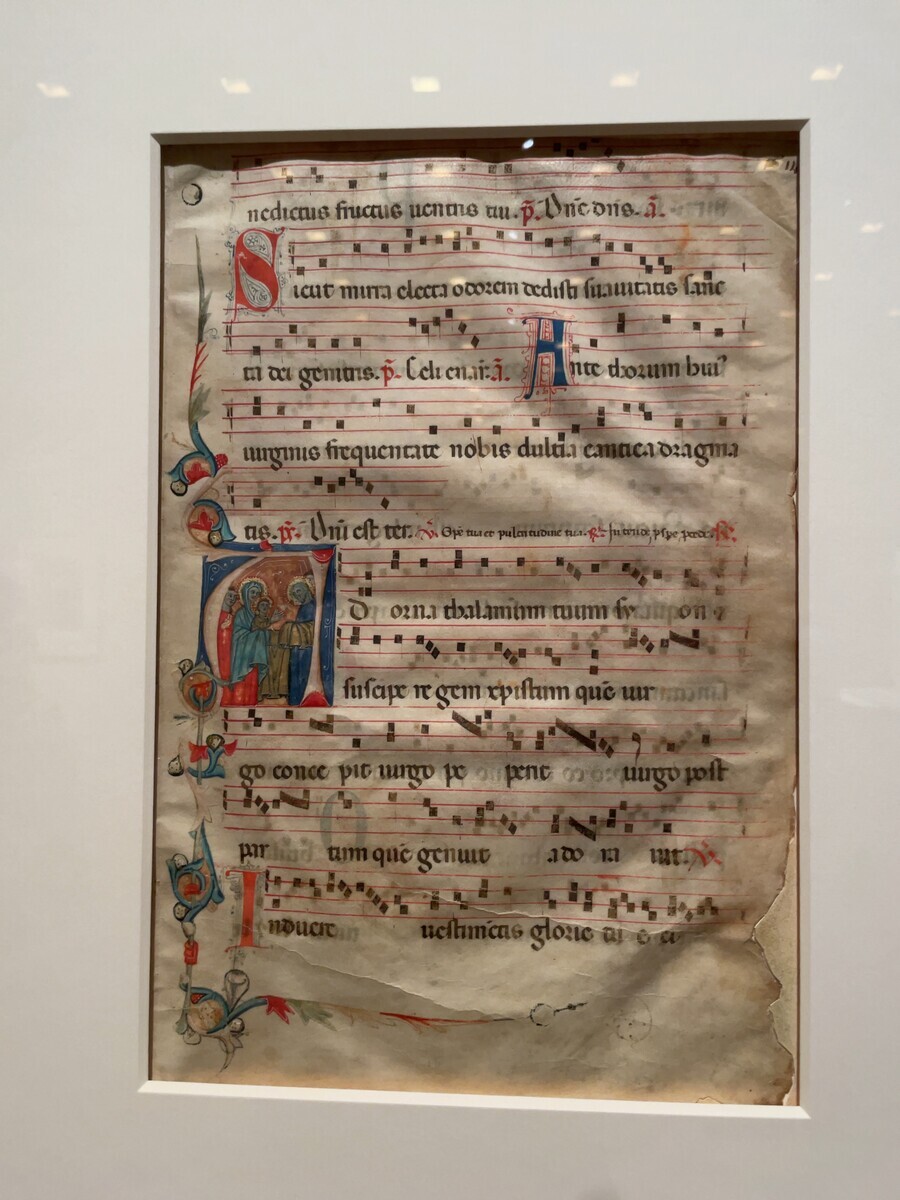 nedictus fructus uentris tui. p̄. Dn̄e dn̄s. ā.
Sicut mirra electa odorem dedisti suauitatis sanc
ta dei genitris. p̄. Celi enar̄. ā. Ante thorum huiꝰ
uirginis frequentate nobis dulcia cantica dragma
tis. p̄. Dn̄i est ter. ℣. Spē tua et pulcritudine tua. ℟.
Adorna thalamum tuum sy on ⁊
suscipe regem xp̄istum quē uir
go conce pit uirgo pe perit uirgo post
par tum quē genuit ado ra uit. ℣.
Induere uestimētis glorie